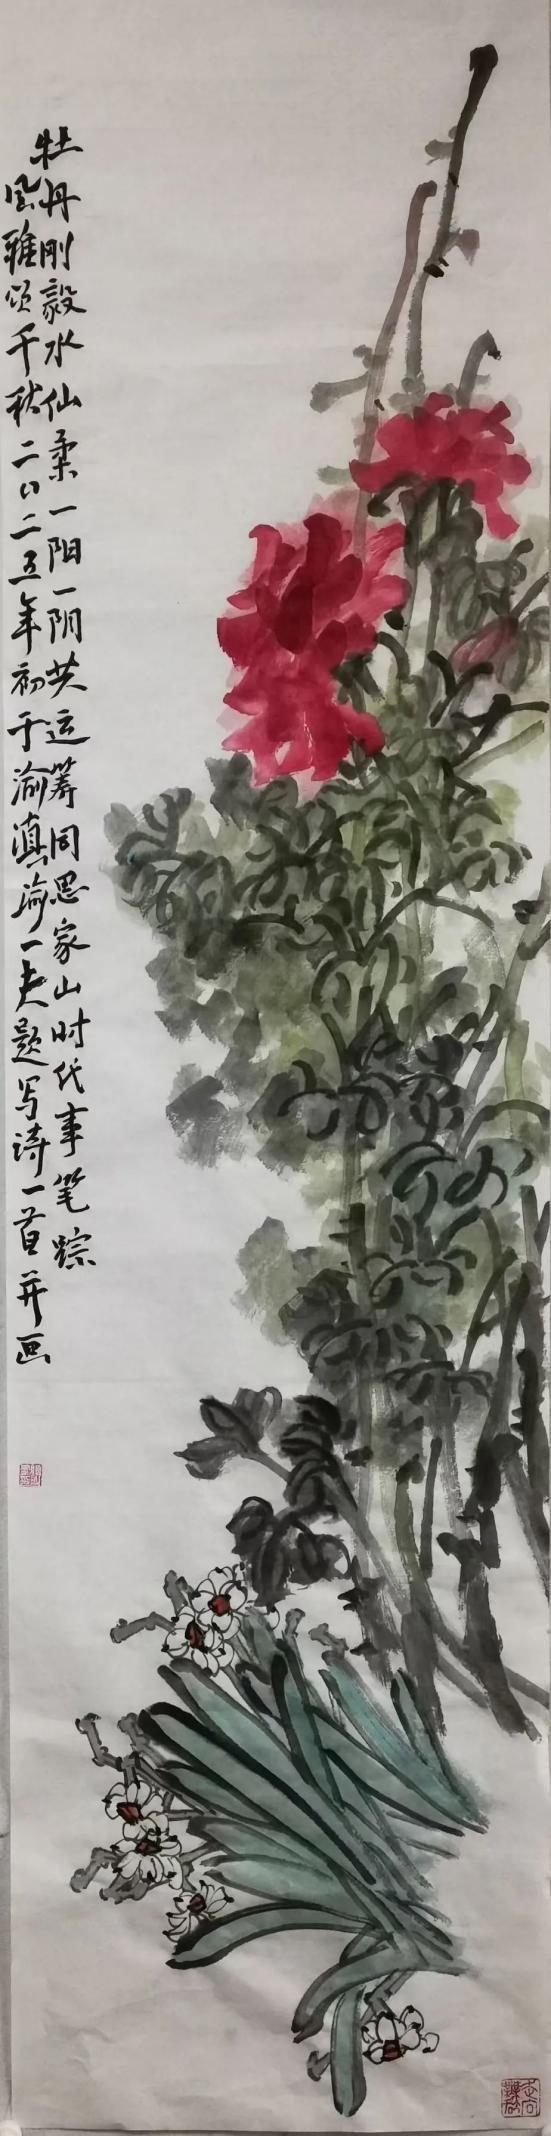 牡丹刚毅水仙柔一阳一阴共运筹同思家山时代事笔踪
风雅颂千秋二〇二五年初于渝滇渝一夫题写诗一首并画